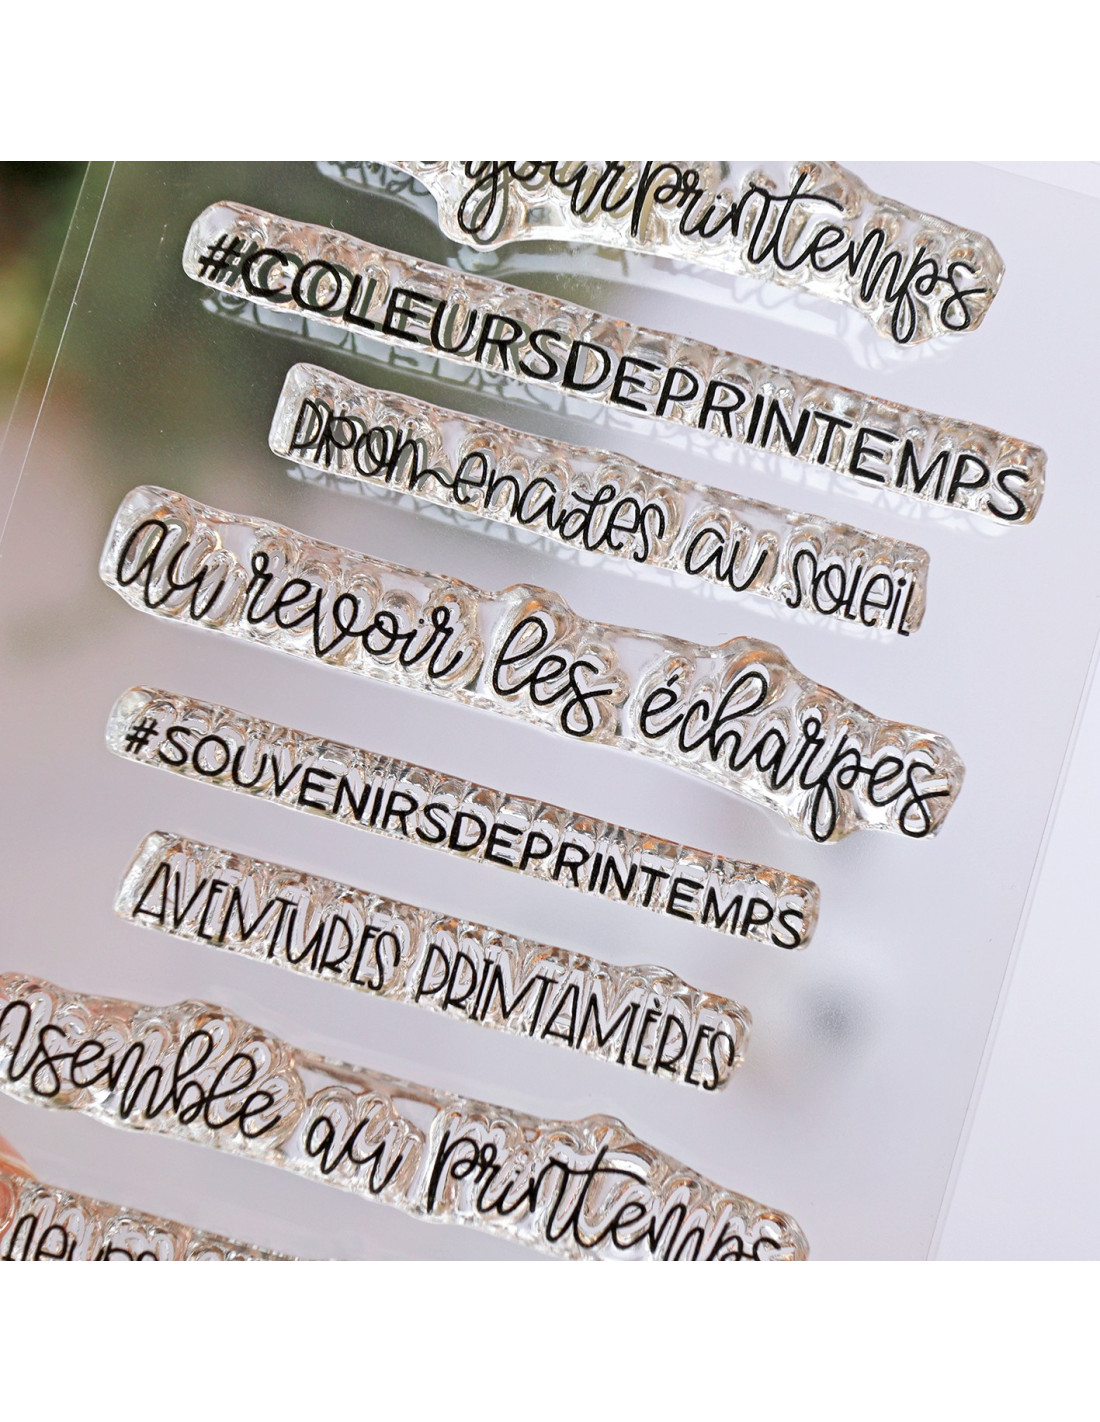 printemps
#COLEURSDEPRINTEMPS
promenades au soleil
au revoir les écharpes
#SOUVENIRSDEPRINTEMPS
AVENTURES PRINTANIÈRES
nsemble au printemps